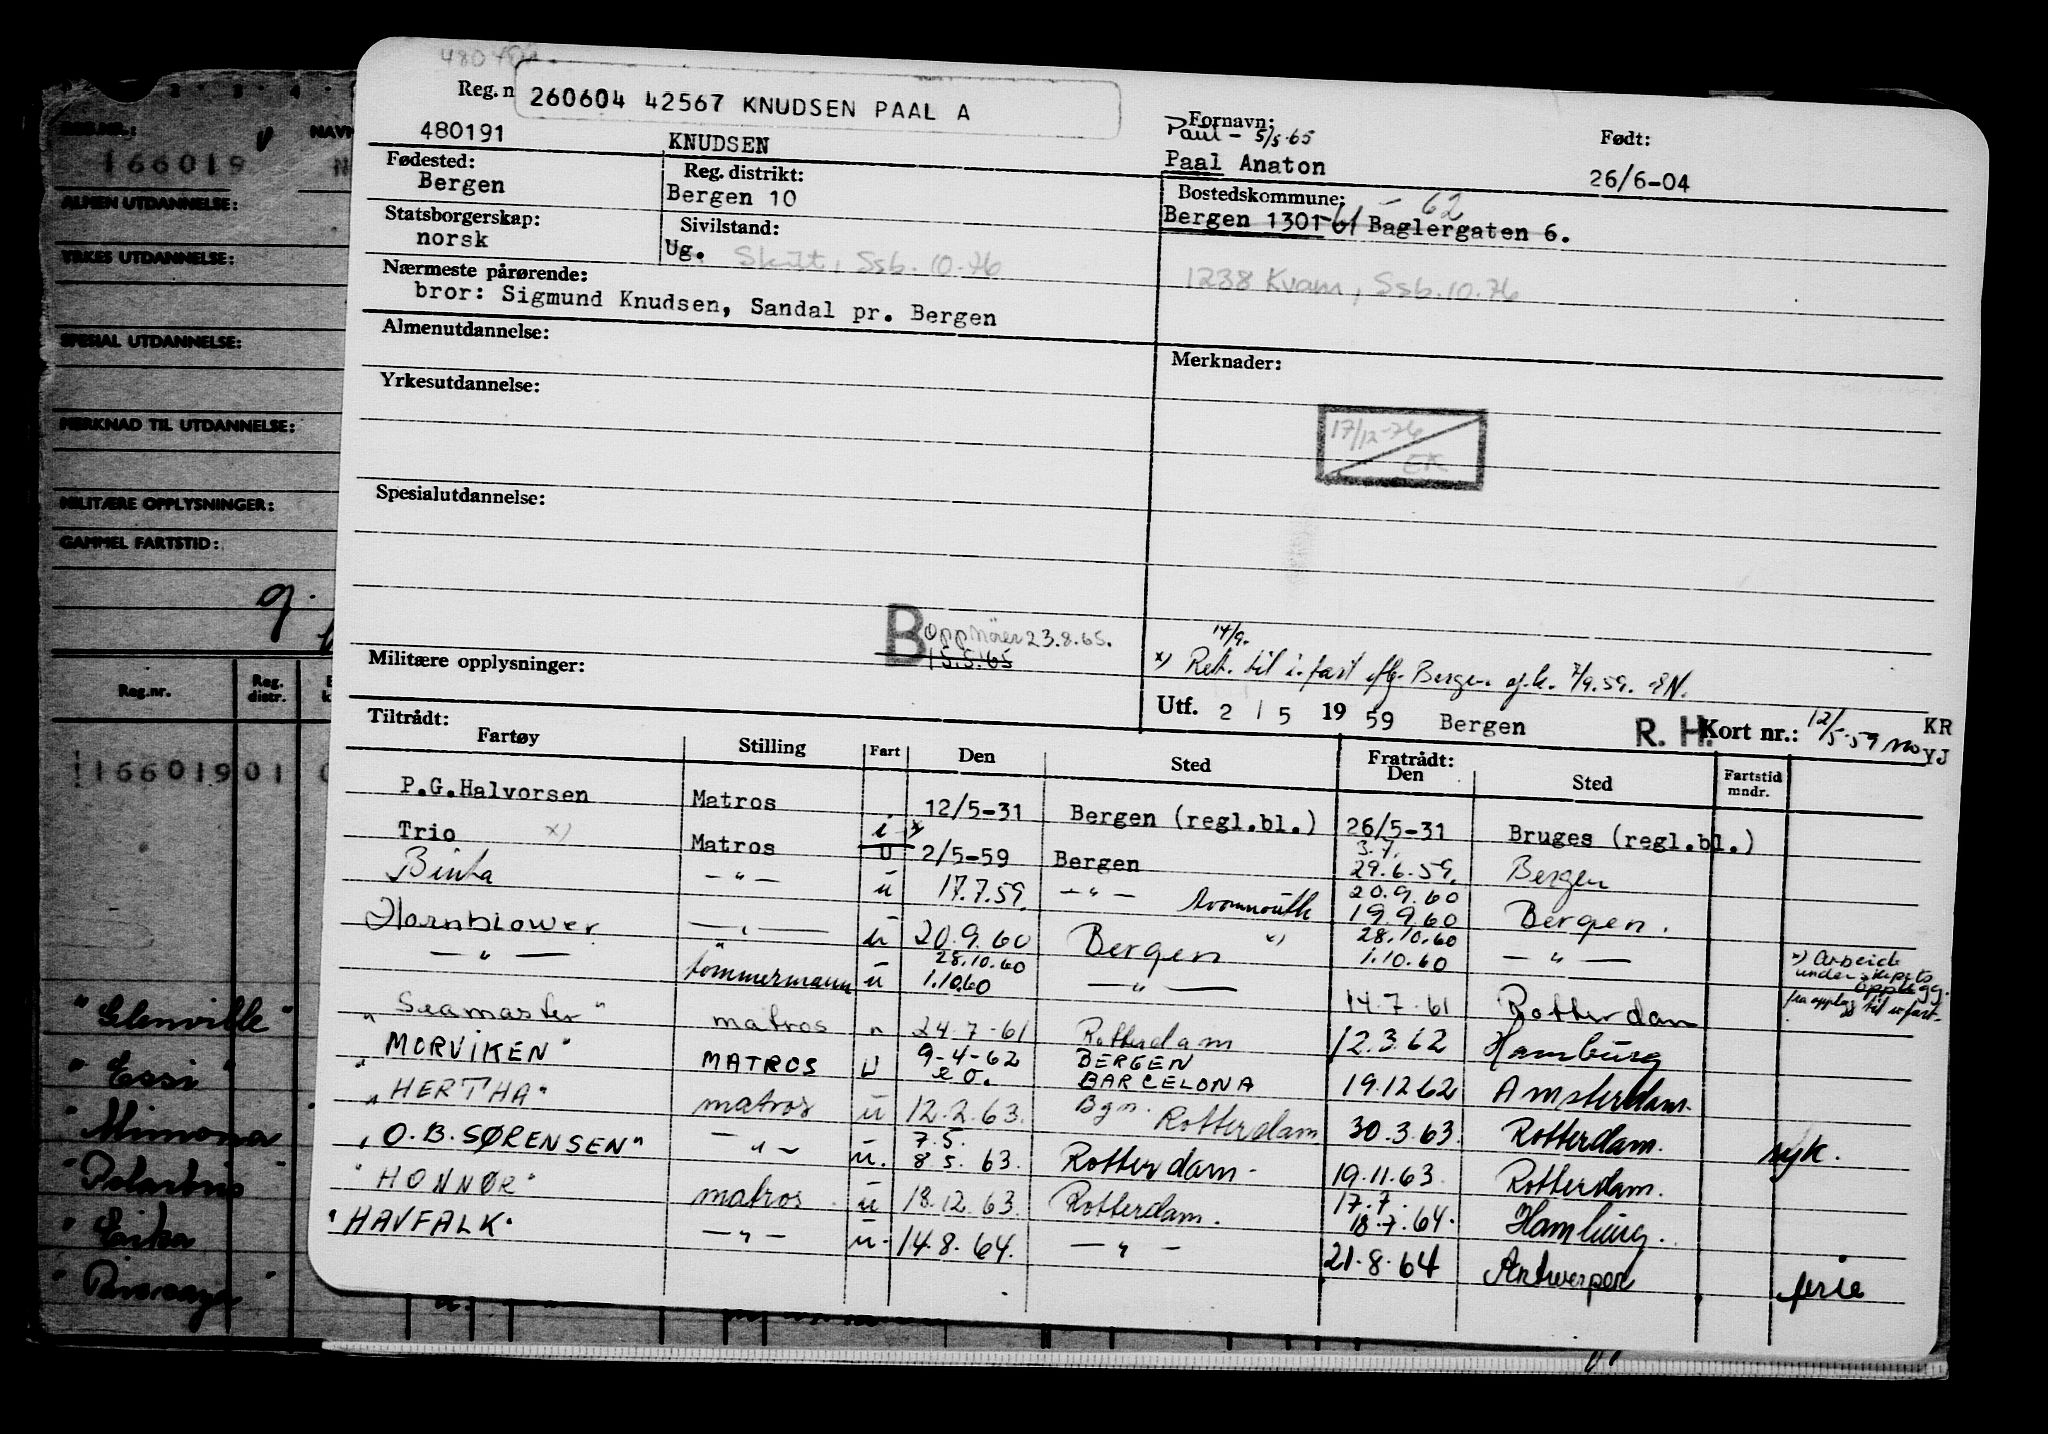 480191
Reg. n
260604 42567 KNUDSEN PAAL A
480191
KNUDSEN
Fornavn:
Paul - 5/5-65
Paal Anaton
Født:
26/6-04
Fødested:
Bergen
Reg. distrikt:
Bergen 10
Bostedskommune:
Bergen 1301 -61 - 62 Baglergaten 6.
Statsborgerskap:
norsk
Sivilstand:
Ug. Skilt, Ssb. 10-76
1238 Kvam, Ssb. 10.76
Nærmeste pårørende:
bror: Sigmund Knudsen, Sandal pr. Bergen
Almenutdannelse:
Merknader:
Yrkesutdannelse:
17/12-76
EK
Spesialutdannelse:
B oppnører 23.8.65.
15.5.65
14/9.
x) Ret. til i.fart iflg. Bergen 7/9.59.
Militære opplysninger:
Utf. 2 / 5 19 59 Bergen R. H. Kort nr.: 12/5-59 KR
YJ
Tiltrådt:
Fartøy Stilling Fart Den Sted Fratrådt: Den Sted Fartstid mndr.
P.G.Halvorsen Matros 12/5-31 Bergen (regl.bl.) 26/5-31 Bruges (regl.bl.)
Trio x) Matros i x U 2/5-59 Bergen 3.7. 29.6.59. Bergen
Binta -"- u 17.7.59. -"- Avonmouth 20.9.60 19.9.60 Bergen.
Hornblower -"- u 20.9.60 Bergen x) 28.10.60 1.10.60 -"- x) Arbeide under skipets opplegg.
-"- tømmermann u 28.10.60 1.10.60 -"- 14-7-61 Rotterdam fra opplegg til u.fart.
"Seamaster" matros " 24-7-61 Rotterdam 12.3.62 Hamburg
"MORVIKEN" MATROS U 9-4-62 e.o. BERGEN BARCELONA 19.12 62 Amsterdam.
"HERTHA" matros u 12.2.63. Bgn. Rotterdam 30.3.63. Rotterdam. syk.
"O.B.SØRENSEN" -"- u. 7.5. 8 5. 63. Rotterdam. 19.11.63. Rotterdam.
"HONNØR" matros u 18.12.63. Rotterdam. 17.7. 18.7.64. Hamburg.
"HAVFALK" -"- u. 14.8.64. -"- 21.8.64 Antwerpen ferie
REG.NR.:
166019
NAVN
ALMEN UTDANNELSE:
YRKES UTDANNELSE:
SPESIAL UTDANNELSE:
MERKNAD TIL UTDANNELSE:
MILITÆRE OPPLYSNINGER:
GAMMEL FARTSTID:
Reg.nr. Reg. distr.
166019 01
"Glenville"
"Essi"
"Mimona"
"Polartris"
"Erika"